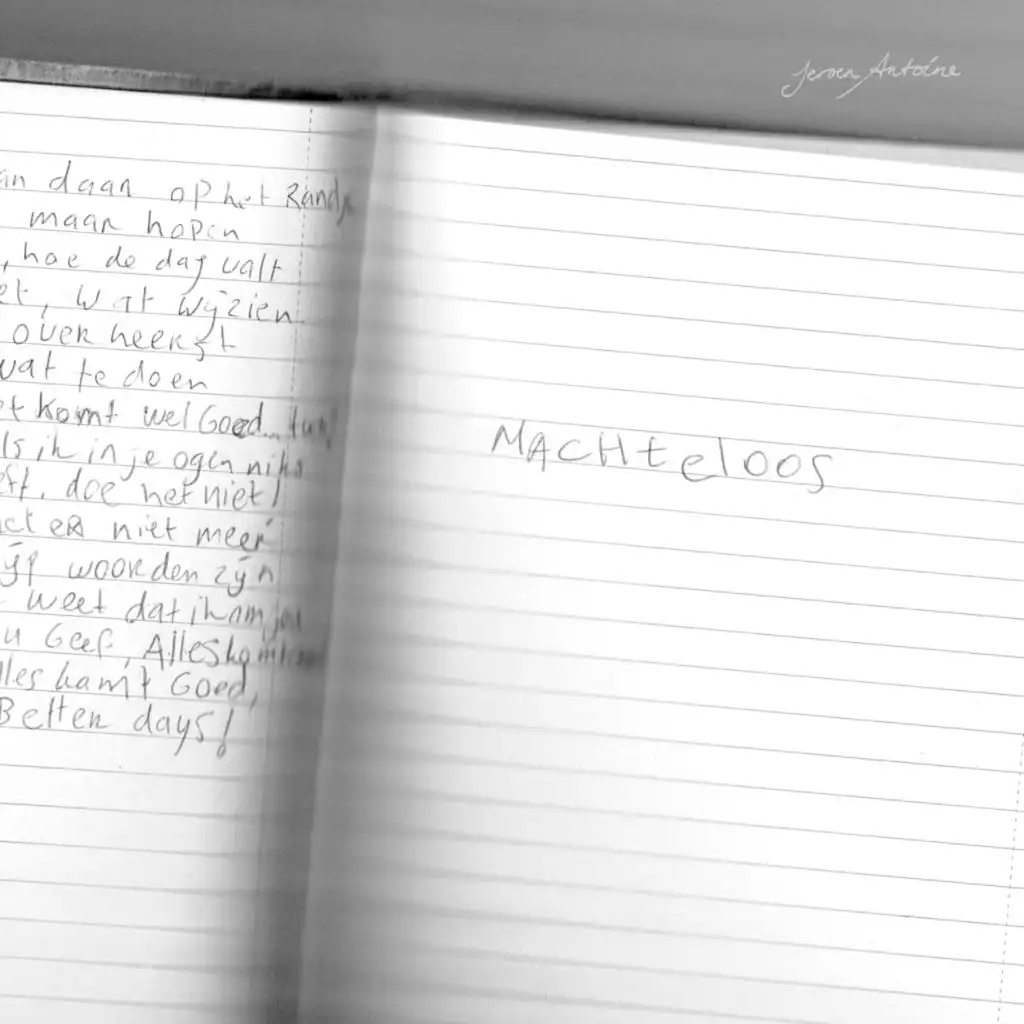 Jeroen Antoine
daar op het
maar hopen
, hoe de dag valt
wat wij zien
overheerst
wat te doen
komt wel Goed
ik in je ogen
doe het niet!
er niet meer
woorden zijn
weet dat ik om jou
Geef, Alles komt
kamt Goed,
Better days!
MACHteloos